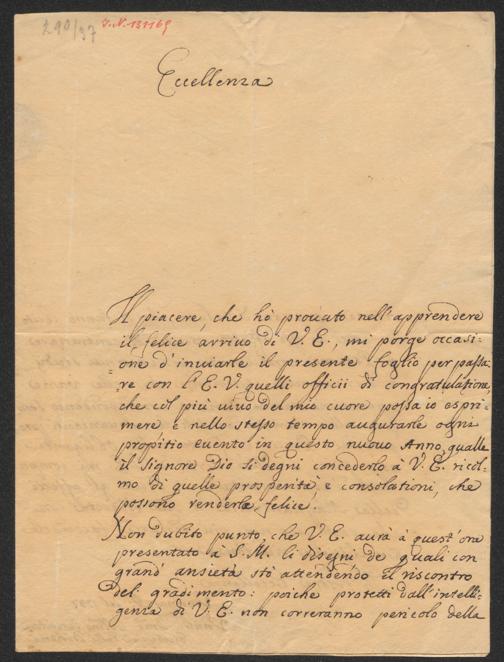 290/37 I.N. 131169
Eccellenza
Il piacere, che hò prouato nell'apprendere
il felice arriuo di V. E., mi porge occasi=
=one d'inuiarle il presente foglio per passa=
=re con l'E. V. quelli officii di congratulatione,
che col più uiuo del mio cuore possa io espri=
mere e nello stesso tempo augurarle ogni
propitio euento in questo nuouo Anno, qualle
il Signore Dio si degni concederlo à V. E. ricol=
mo di quelle prosperità e consolationi, che
possono renderla felice.
Non dubito punto, che V. E. aurà à quest'ora
presentato à S. M. li disegni de quali con
grand'ansietà stò attendendo il riscontro
del gradimento: poiche protetti dall'intelli=
genza di V. E. non correranno pericolo della